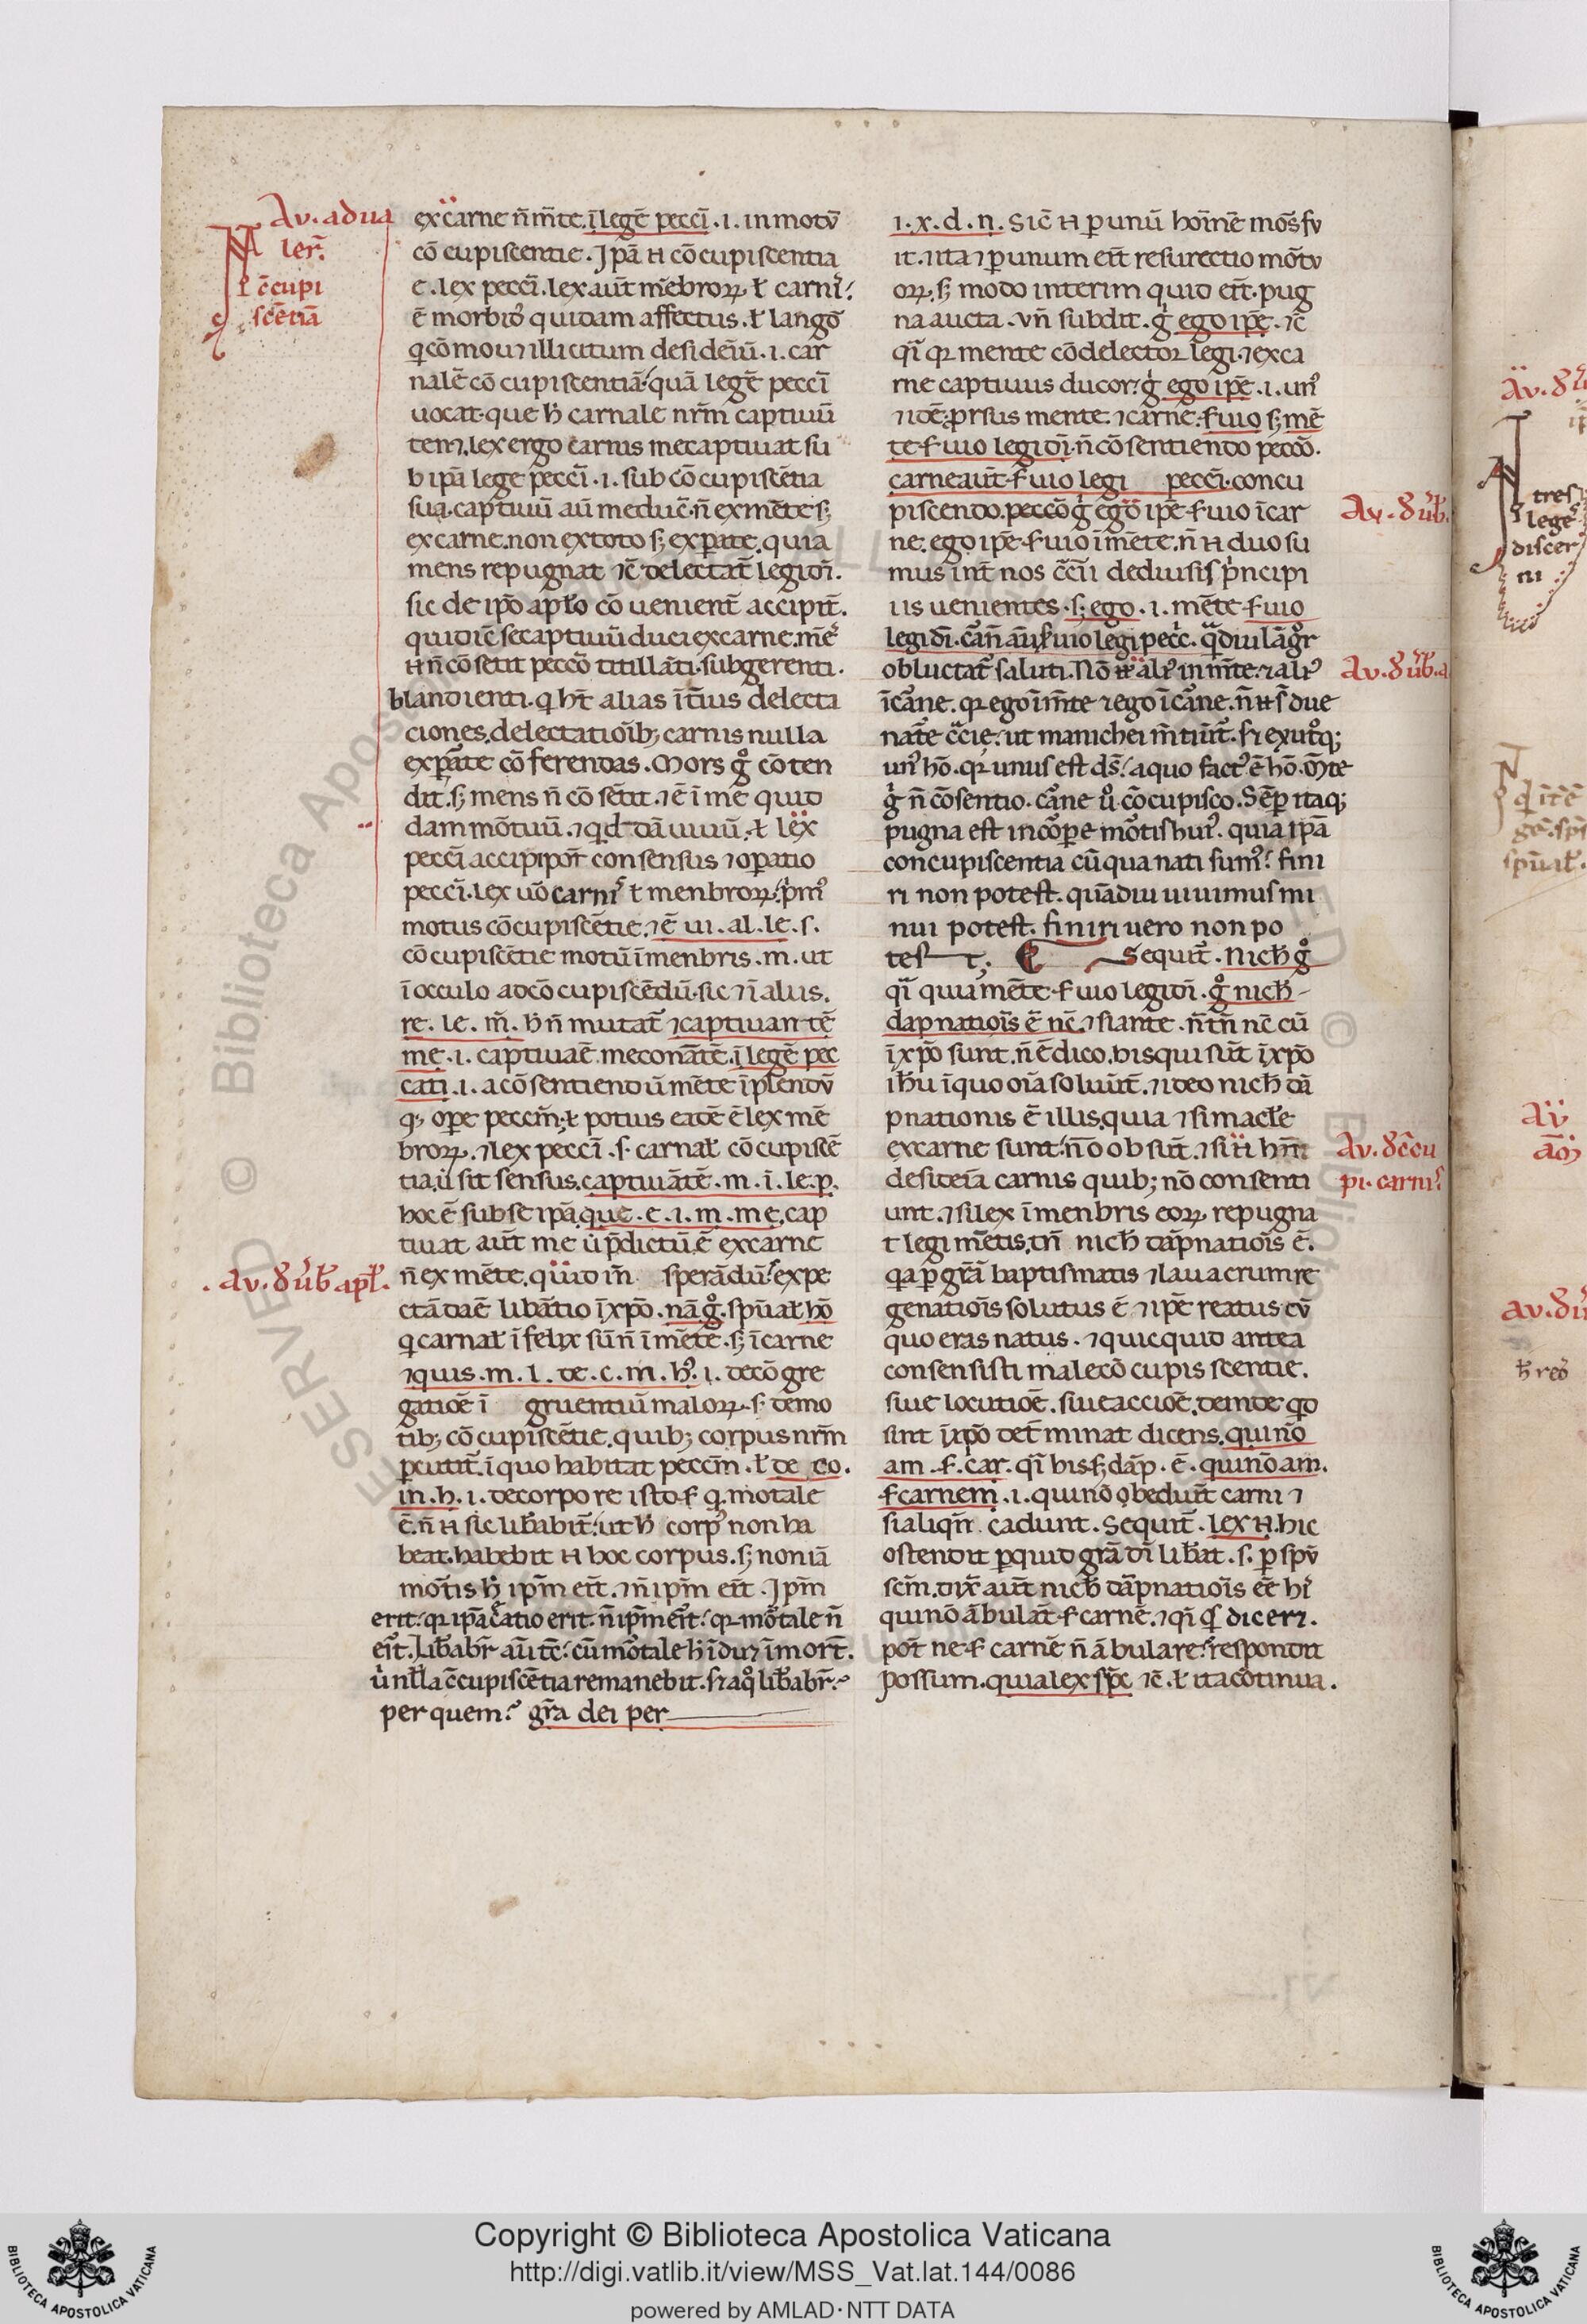 Av. adua
ler̄.
ł c̄cupi
scētiā
ex carne n̄ m̄te. ī legē peccī .i. in motū
cō cupiscentie. Ipā .n. cōcupiscentia
e. lex peccī. lex aūt mēbroꝝ ł carnis
ē morbiōꝰ quidam affectus. ł langō
q̄ cōmouꝫ illicitum desidēiū .i. car
nalē cō cupiscentiā. quā legē peccī
uocat. que h̄ carnale nr̄m captiuū
tenꝫ. lex ergo carnis me captiuat su
b ipā lege peccī .i. sub cōcupiscētia
sua. captiuū aū me duc̄. n̄ ex mēte sꝫ
ex carne. non ex toto sꝫ ex parte. quia
mens repugnat ⁊c̄ delectat̄ legi dī.
sic de ipō apło cō uenient̄ accipit̄.
qui dīc se captiuū duci ex carne. m̄e
.n. n̄ cōsētit peccō titillāti. subgerenti.
blandienti. q ht̄ alias īt̄ius delecta
ciones. delectatiōibꝫ carnis nulla
ex parte cō ferendas. Mors gͦ cō ten
dit. sꝫ mens n̄ cō sētit. ⁊ ē ī me quid
dam mōtuū. ⁊ qd̄ dā uiuū. ł lex
peccī accipi pōt consensus ⁊ opatio
peccī. lex uō carnis ł menbroꝝ. pmꝰ
motus cōcupiscētie. ⁊ ē ui. al. le. s.
cōcupiscētie motū ī menbris. m. ut
ī occulo ad cōcupiscēdū. sic ⁊ ī aliis.
re. le. m̄. h̄ n̄ mutat̄ ⁊ captiuan tē
me .i. captiuaē me conātē. ī legē pec
cati .i. a cōsentiendū mēte īplendū
qꝫ ope peccm̄. ł potius eadē ē lex mē
broꝝ. ⁊ lex peccī. s. carnał cōcupiscē
tia. ū sit sensus. captiuātē. m. ī. le. p.
hoc ē sub se ipā. que. e. i. m. me. cap
tiuat aūt me ū p̄dictū ē ex carne
. Av. ꝟ ūb apł.
n̄ ex mēte. quid m̄ sperādū. expe
ctā daē libātio ī xp̄o. nā gͦ. spūał hō
q carnał ī felix sū n̄ ī mēte. sꝫ ī carne
⁊ quis. m. l. de. c. m. hꝰ. i. de cōgre
gatiōe ī gruentiū maloꝝ. s. de mo
tibꝫ cō cupiscētie. quibꝫ corpus nr̄m
pcutit̄. ī quo habitat peccm̄. ł de co.
m. h. i. de corpore isto. s. q. motale
ē. n̄ .n. sic libabit̄. ut h̄ corpꝰ non ha
beat. habebit .n. hoc corpus. sꝫ non iā
motis h̄ ipm̄ erīt. ⁊ n̄ ipm̄ erīt. Ipm̄
erit. qr ipā c̄atio erit. n̄ ipm̄ erīt. qr mōtale n̄
erīt. libabr̄ aūt̄c̄. cū mōtale h̄ īduꝫ ī mort̄.
ū nłła c̄cupiscētia remanebit. s; a qͦ libabr̄.
per quem? gr̄a dei per
i. x. d. n̄. Sic̄ .n. p unū hoīnē mōs fu
it. ⁊ ita ⁊ p unum erīt resurectio mōtu
oꝝ. sꝫ modo interim quid erīt. pug
na aucta. vn̄ subdit. g̊ ego ipē. ⁊c̄
qī qr mente cōdelector legi. ⁊ ex ca
rne captiuus ducor. g̊ ego ipē .i. unꝰ
⁊ idē. prsus mente ⁊ carne. s̄uio sꝫ mē
te s̄uio legi dī. n̄ cōsentiendo peccō.
carne aūt s̄uio legi peccī. concu
piscendo. peccō g̊ ego ipē s̄uio ī car
Av. ꝟ ūb.
ne. ego ipē s̄uio ī mēte. n̄ .n. duo su
mus īnt̄ nos c̄cīi de diuisis p̄ncipi
iis uenientes. sꝫ ego .i. mēte s̄uio
legi dī. cān̄ aū s̄uio legi pecc̄. qͣdiu lāgͦr
obluctat̄ saluti. Nō .n. alꝰ in m̄te. ⁊ alꝰ
Av. ꝟ ūb. a
ī cāne. qr ego ī m̄te ⁊ ego ī cāne. n̄ .n. s̄ due
nat̄e c̄cie. ut manichei m̄tiūt̄. s; ex utͦqꝫ
unꝰ hō. qr unus est ds̄. a quo factꝰ ē hō. m̄te
g̊ n̄ cōsentio. cāne uͦ cōcupisco. Sēp itaqꝫ
pugna est in cōpe mōtis huiꝰ. quia ipā
concupiscentia cū qua nati sumꝰ. fini
ri non potest. quādiu uiuimus mi
nui potest. finiri uero non po
tes t. Sequit̄. nich̄ gͦ
qī quia mēte s̄uio legi dī. gͦ nich̄
dapnatiōis ē nc̄. ⁊ si ante. n̄ tn̄ nc̄ cū
ī xp̄o sunt. n̄ ē dico. his qui sūt ī xp̄o
ih̄u ī quo oīa soluūt̄. ⁊ deo nich̄ dā
pnationis ē illis. quia ⁊ si macl̄e
ex carne sunt. nō obsūt. ⁊ si ⁊ h̄nt
Av. ꝟ c̄cu
desideia carnis quibꝫ nō consenti
pi. carnis
unt. ⁊ si lex ī menbris eoꝝ repugna
t legi mētis. tn̄ nich̄ dāpnatiōis ē.
q̄a p gr̄ā baptismatis ⁊ lauacrum re
genatiōis solutus ē ⁊ ipē reatus cū
quo eras natus. ⁊ quicquid antea
consensisti male cō cupis scentie.
siue locutiōe. siue acciōe. deinde qd̄
sint ī xp̄o det̄ minat dicens. qui nō
am. s̄. car. qī his sꝫ dāp. ē. qui nō am.
s̄ carnem .i. qui nō obediūt carni ⁊
si aliqn̄ cadunt. Sequit̄. lex .n. hic
ostendit p quid grā dī libat. s. p spū
sc̄m. dix̄ aūt nich̄ dāpnatiōis eē his
qui nō ābulāt s̄ carnē. ⁊ qī qs dicerꝫ.
pōt ne. s̄ carnē n̄ ā bulare. respondit
possum. quia lex sp̄c ⁊c̄. ł ita cōtinua.
Copyright © Biblioteca Apostolica Vaticana
http://digi.vatlib.it/view/MSS_Vat.lat.144/0086
powered by AMLAD·NTT DATA
BIBLIOTECA APOSTOLICA VATICANA
BIBLIOTECA APOSTOLICA VATICANA